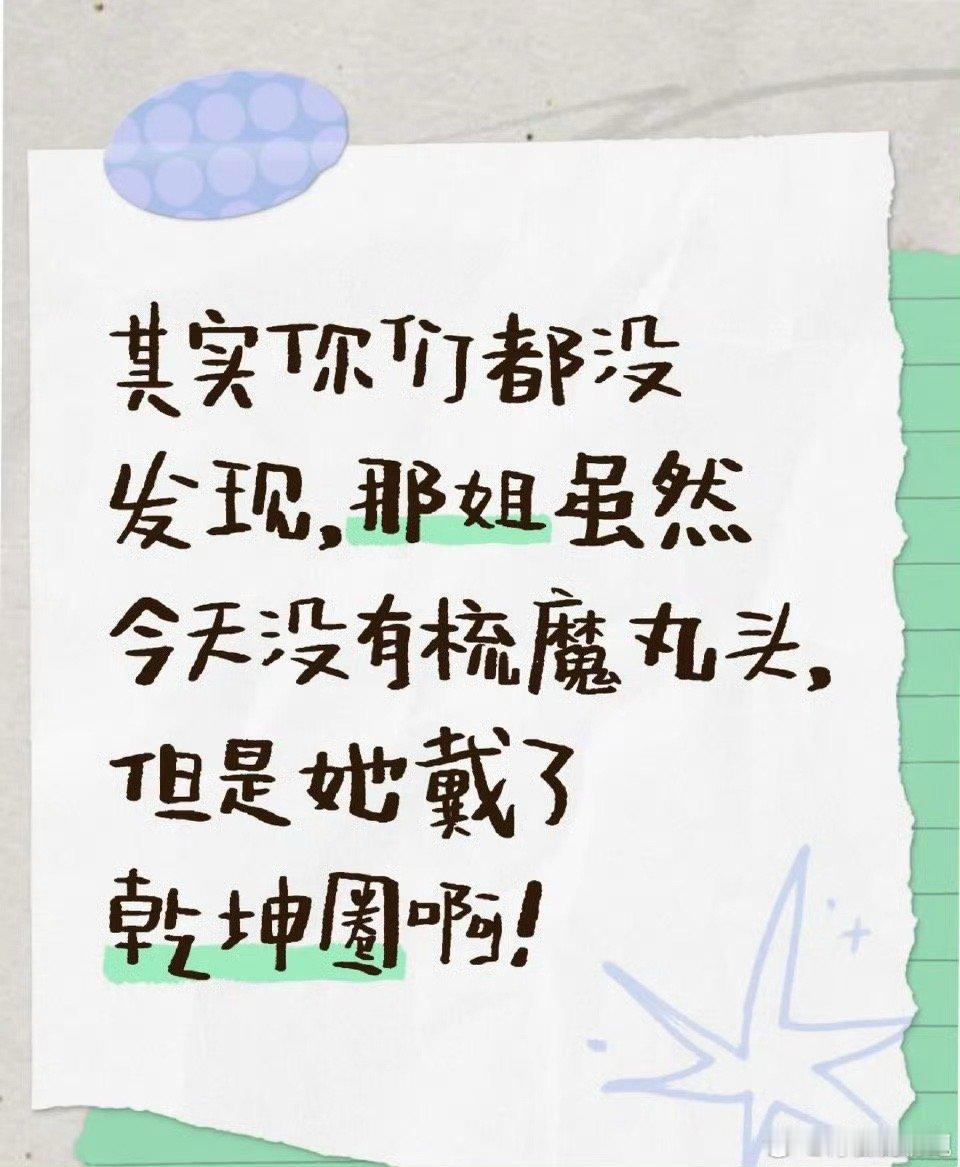 其实你们都没
发现,那姐虽然
今天没有梳魔丸头,
但是她戴了
乾坤圈啊!